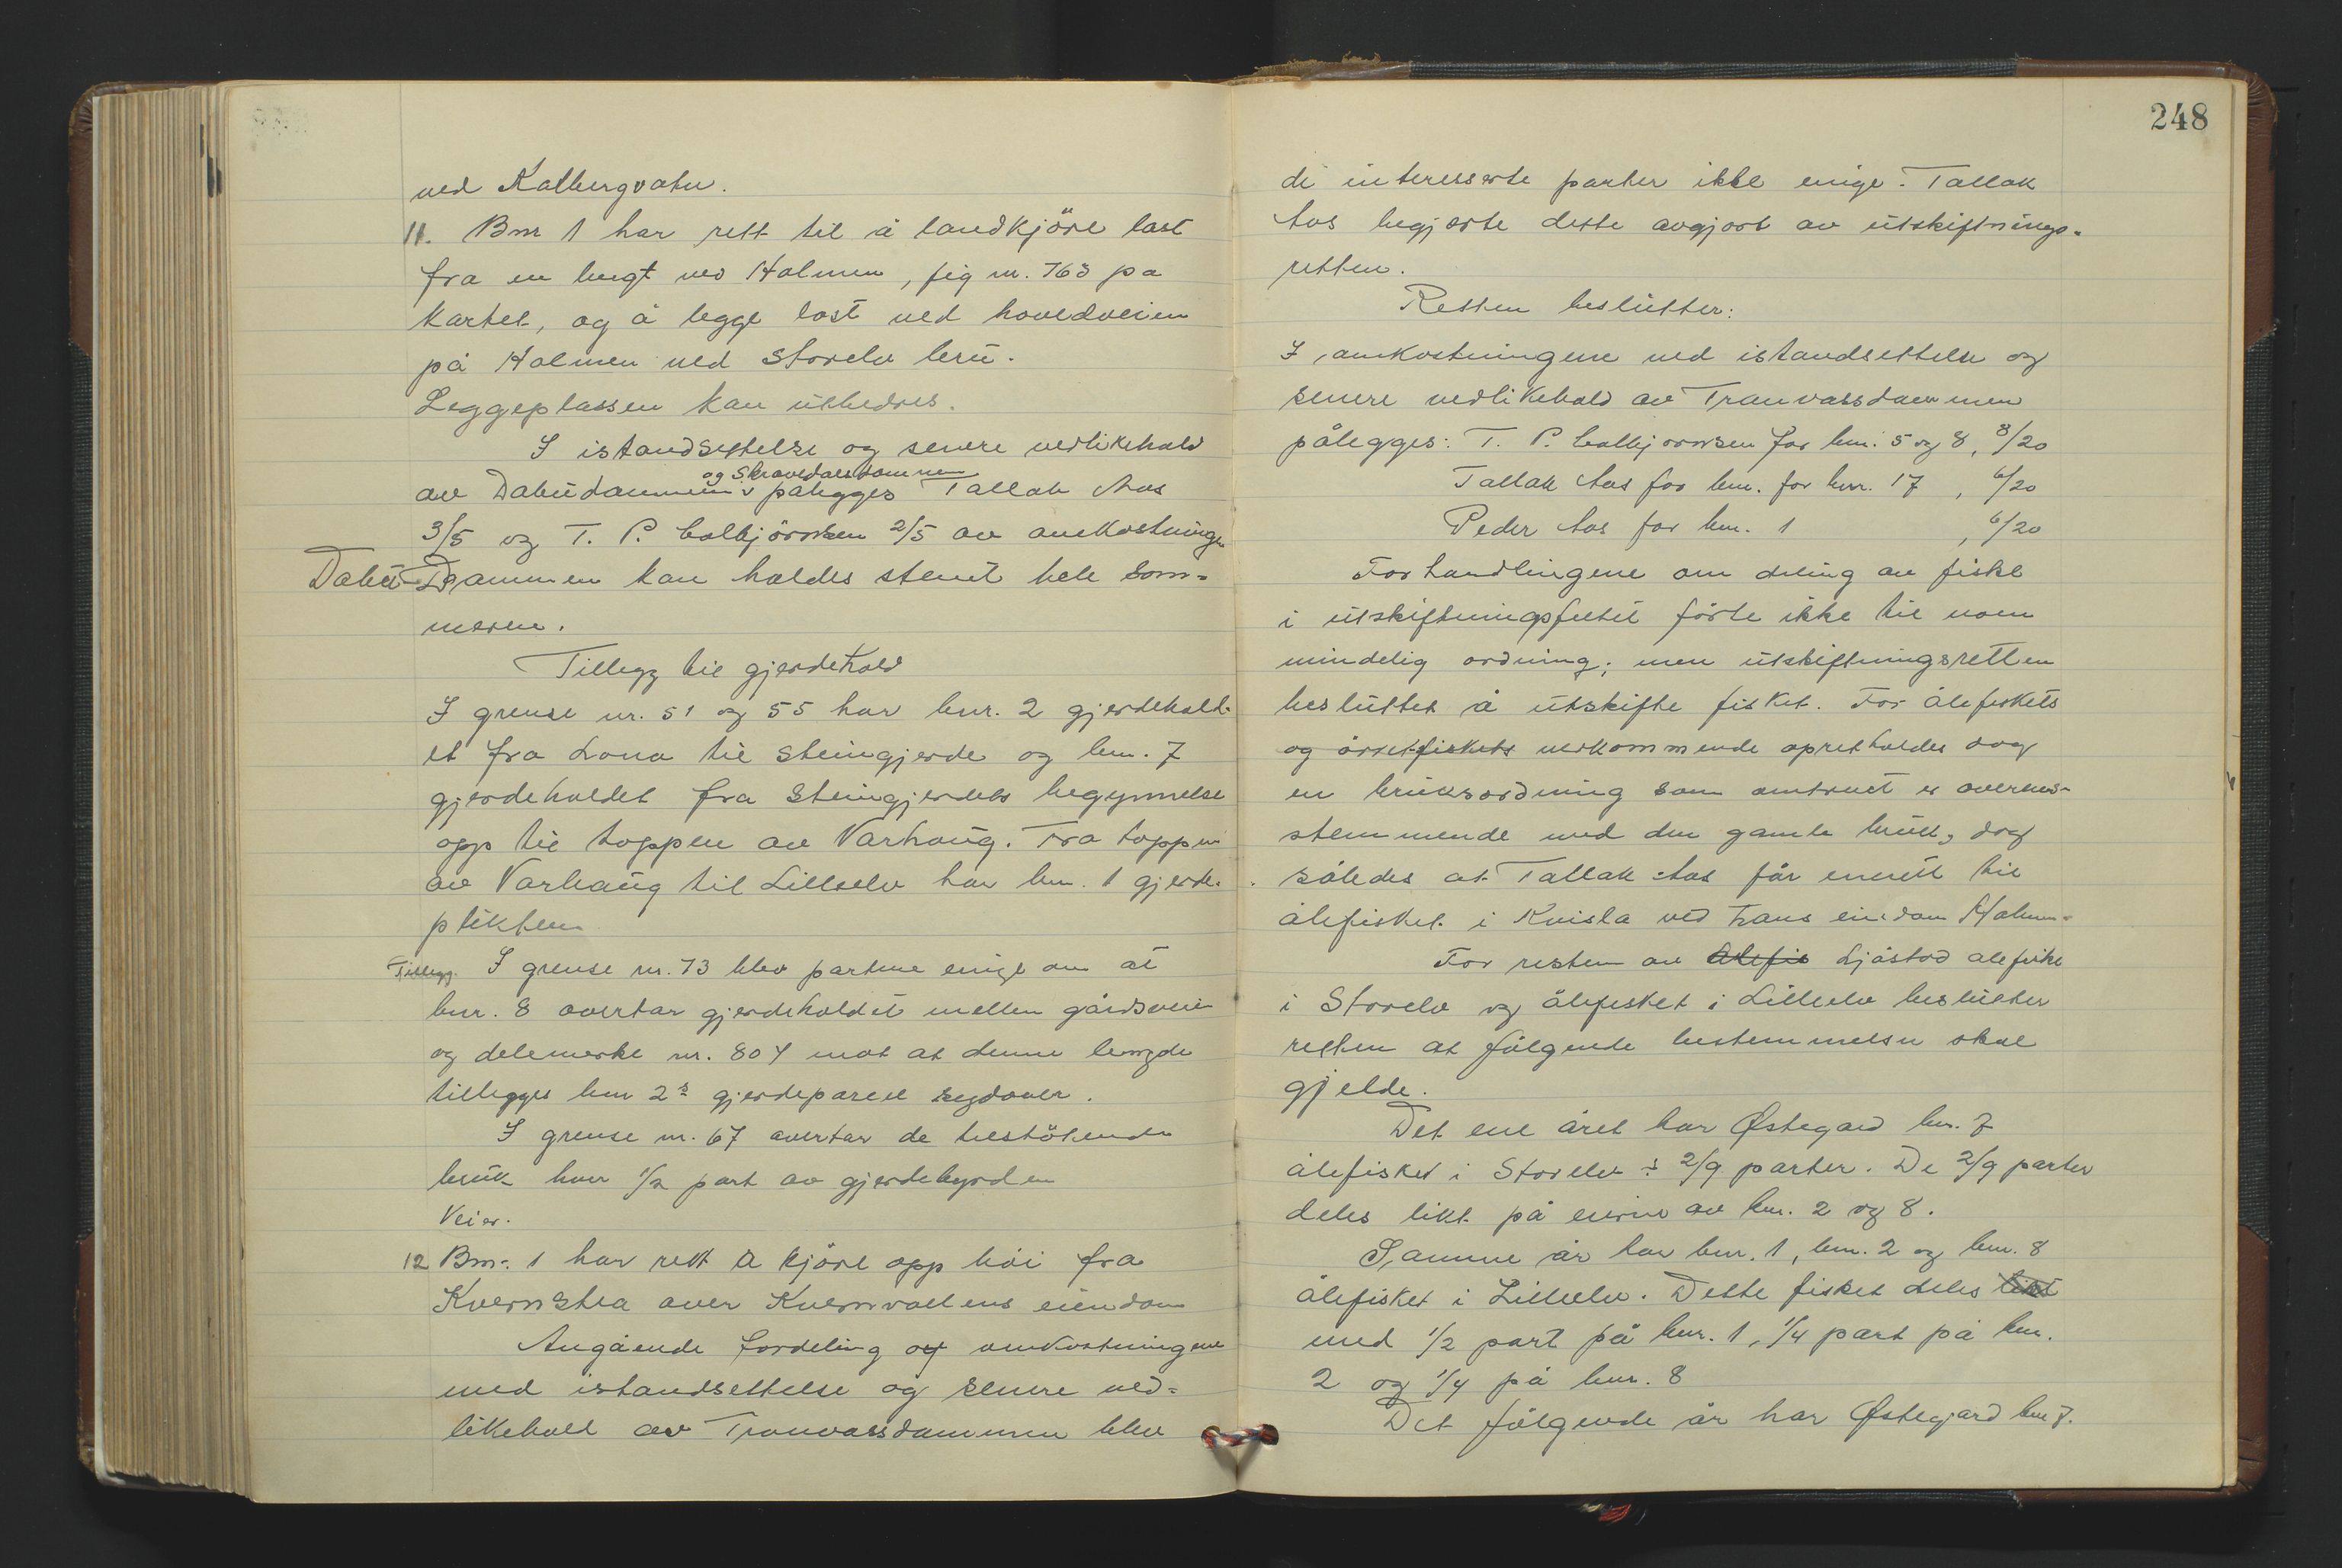 ved Kalbergvatn.
11. Bnr 1 har rett til å landkjöre last
fra en bugt ved Holmen, fig nr. 763 på
kartet, og å legge last ved hovedveien
på Holmen ved Storelv bru.
Leggeplassen kan utbedres.
I istandsettelse og senere vedlikehold
og Skravedalsdammen
av Dabudammen v pålegges Tallak Aas
3/5 og T. P. Colbjörnsen 2/5 av omkostninge
Dabu-Dammen kan holdes stengt hele som-
meren.
Tillegg til gjerdehold
I grense nr. 51 og 55 har bnr. 2 gjerdehold-
et fra Lona til steingjerde og bnr. 7
gjerdeholdet fra steingjerdets begynnelse
opp til toppen av Varhaug. Fra toppen
av Varhaug til Lilleelv har bnr. 1 gjerde-
plikten
Tillegg. I grense nr. 73 blev partene enige om at
bnr. 8 overtar gjerdeholdet mellem gårdsvei
og delemerke nr. 804 mot at denne lengde
tillegges bnr 2s gjerdeparsel sydover.
I grense nr. 67 overtar de tilstötende
bruk hver 1/2 part av gjerdebyrden
Veier.
12 Bnr. 1 har rett å kjöre opp höi fra
Kvernstea over Kvernvollens eiendom
Angående fordeling av omkostningene
med istandsettelse og senere ved-
likehold av Tranvassdammen blev
248
de interesserte parter ikke enige. Tallak
Aas begjerte dette avgjort av utskiftnings-
retten.
Retten beslutter:
I omkostningene ved istandsettelse og
senere vedlikehold av Tranvassdammen
pålegges: T. P. Colbjørnsen for bnr. 5 og 8, 8/20
Tallak Aas for bnr. for bnr. 17, 6/20
Peder Aas for bnr. 1, 6/20
Forhandlingene om deling av fiske
i utskiftningsfeltet förte ikke til noen
mindelig ordning; men utskiftningsretten
besluttet å utskifte fisket. For ålefiskets
og örretfiskets vedkommende opretholdes dog
en bruksordning som omtrent er overens-
stemmende med den gamle bruk, dog
således at Tallak Aas får enerett til
ålefisket i Kvisla ved hans eiendom Holmen
For resten av Alefis Ljåstod alefiske
i Storelv og ålefisket i Lilleelv beslutter
retten at fölgende bestemmelser skal
gjelde.
Det ene året har Østegard bnr. 7
ålefisket i Storelv ÷ 2/9 parter. De 2/9 parter
deles likt på eierne av bnr. 2 og 8.
Samme år har bnr. 1, bnr. 2 og bnr. 8
ålefisket i Lilleelv. Dette fisket deles likt
med 1/2 part på bnr. 1, 1/4 part på bnr.
2 og 1/4 på bnr. 8
Det fölgende år har Østegjard bnr 7.